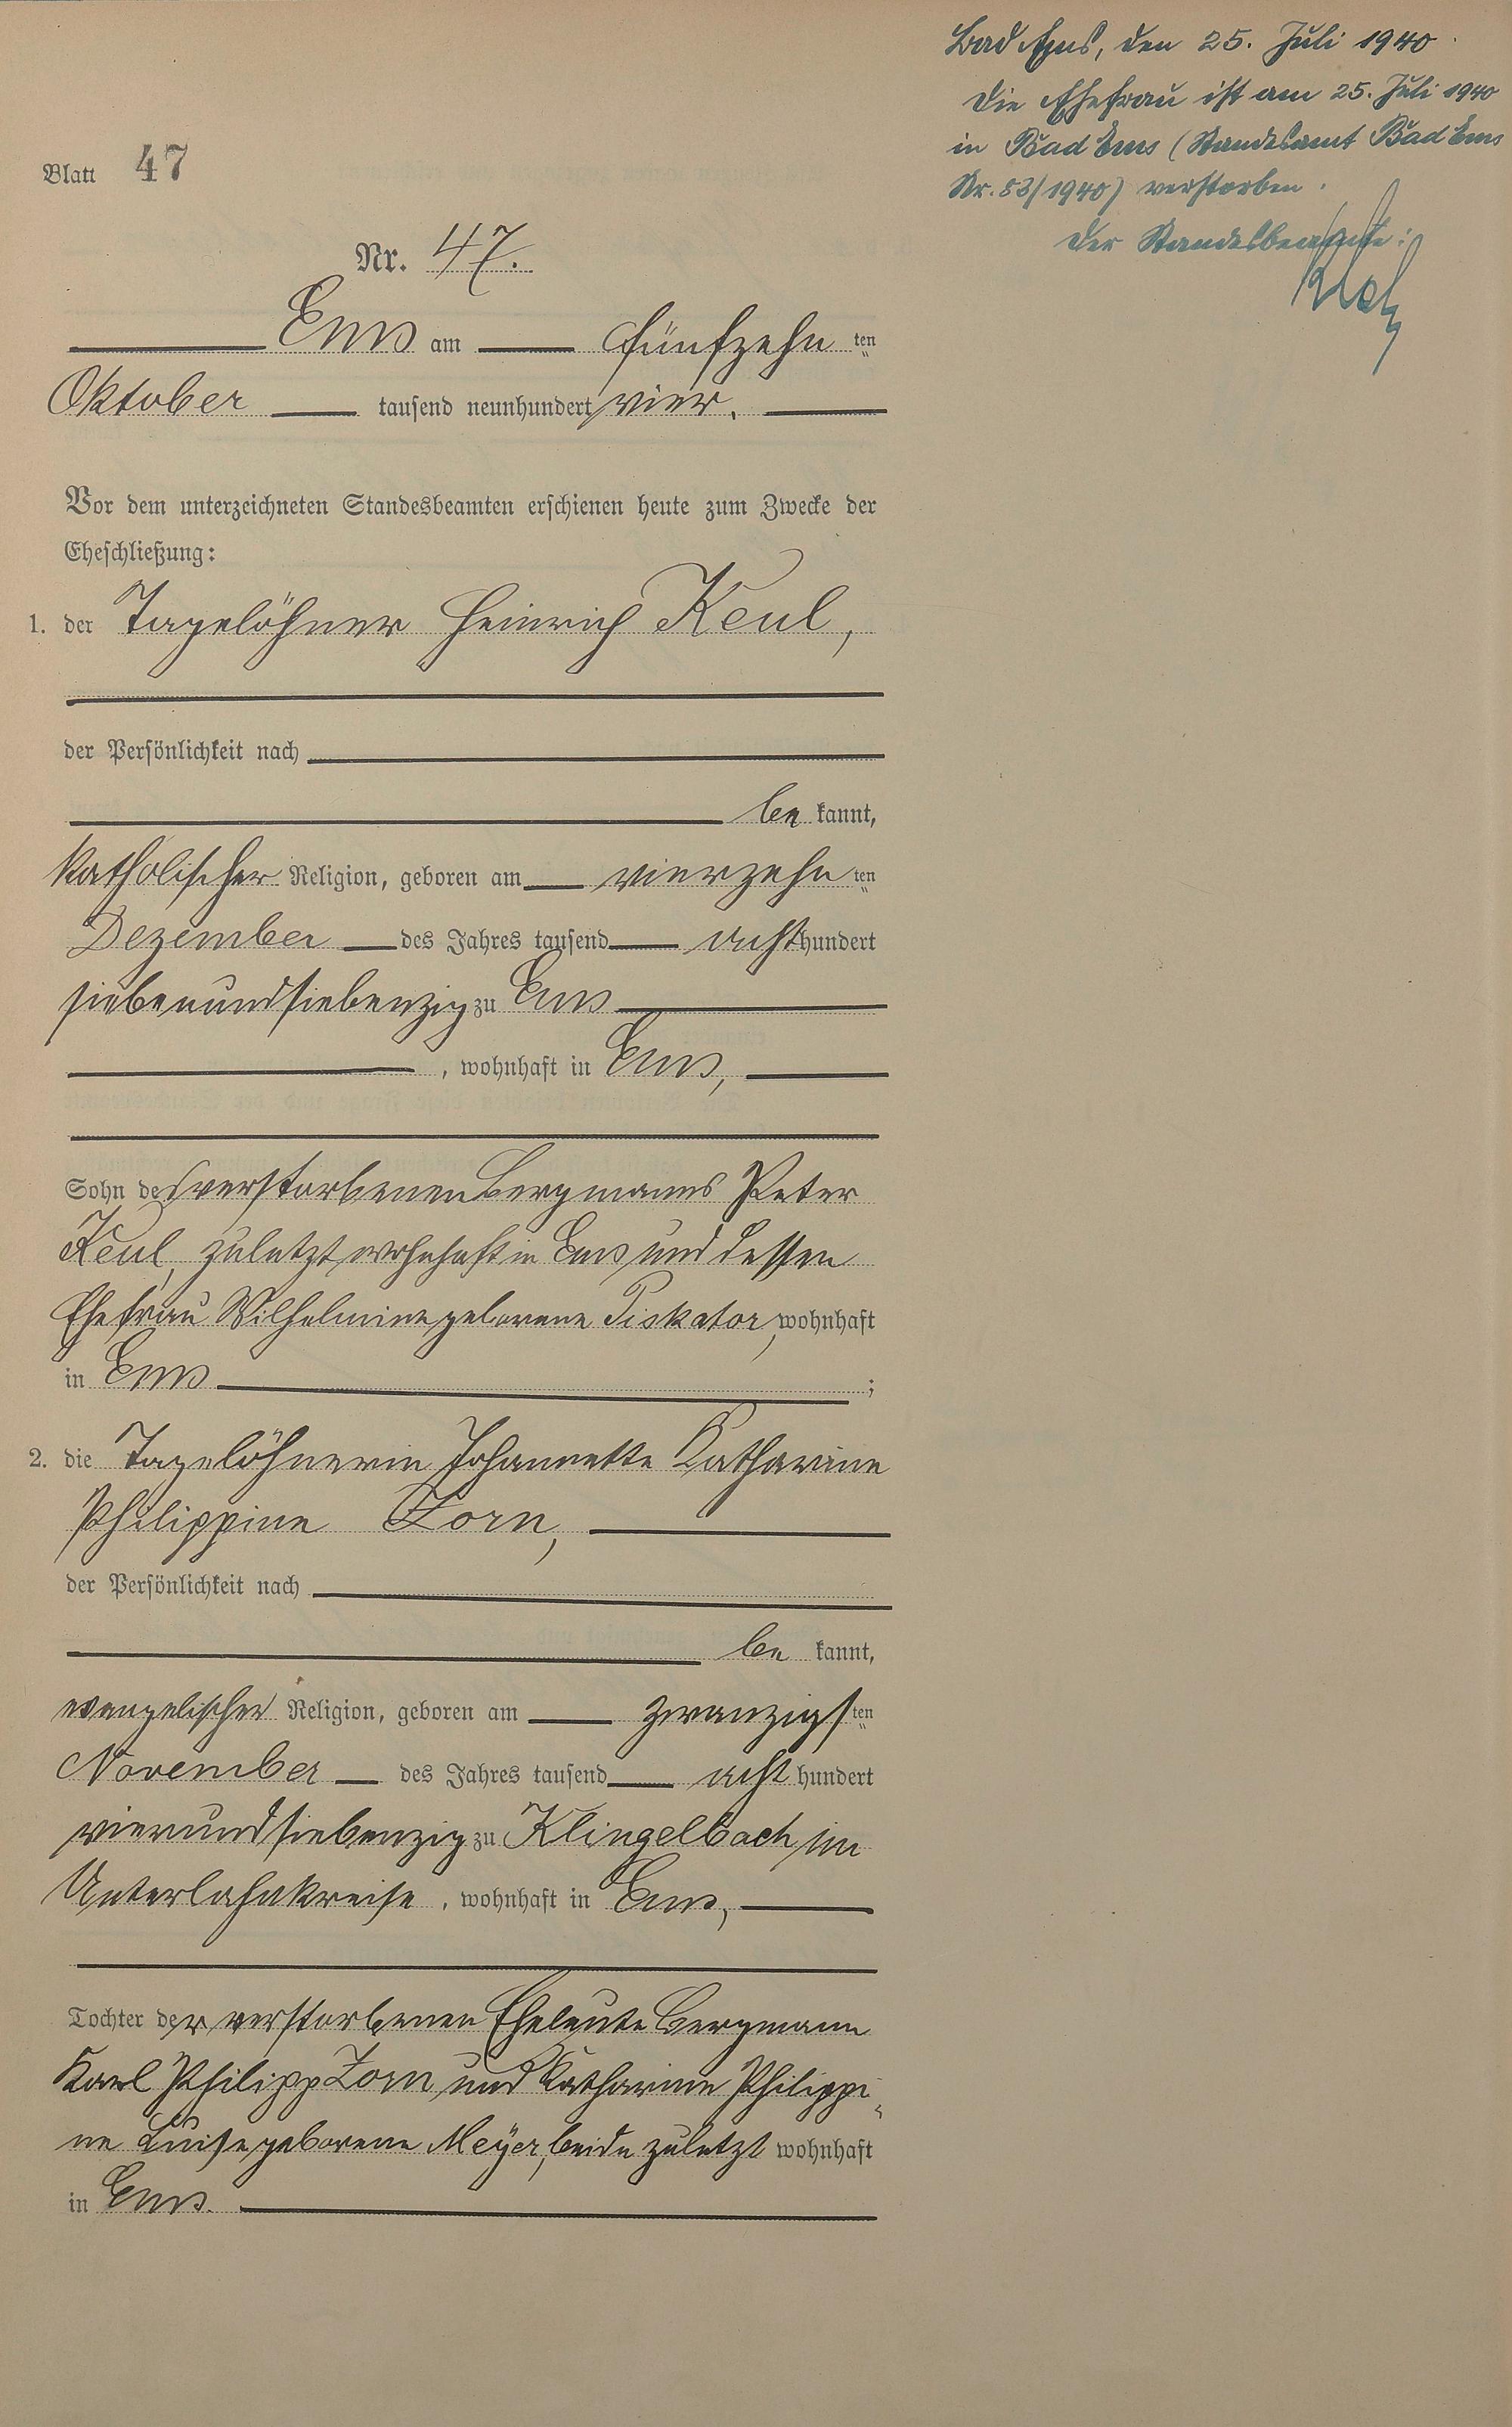 Blatt 47
Nr. 47.
Ems am fünfzehn ten
Oktober tausend neunhundert vier.
Vor dem unterzeichneten Standesbeamten erschienen heute zum Zwecke der
Eheschließung:
1. der Tagelöhner Heinrich Keul,
der Persönlichkeit nach
be kannt,
katholischer Religion, geboren am vierzehn ten
Dezember des Jahres tausend acht hundert
siebenundsiebenzig zu Ems
, wohnhaft in Ems,
Sohn des verstorbenen Bergmanns Peter
Keul, zuletzt wohnhaft in Ems und dessen
Ehefrau Wilhelmine geborene Piskator, wohnhaft
in Ems ;
2. die Tagelöhnerin Johannette Katharine
Philippine Zorn,
der Persönlichkeit nach
be kannt,
evangelischer Religion, geboren am zwanzigs ten
November des Jahres tausend acht hundert
vierundsiebenzig zu Klingelbach im
Unterlahnkreise, wohnhaft in Ems,
Tochter der verstorbenen Eheleute Bergmann
Karl Philipp Zorn und Katharine Philippi-
ne Luise geborene Meyer, beide zuletzt wohnhaft
in Ems.
Bad Ems, den 25. Juli 1940
Die Ehefrau ist am 25. Juli 1940
in Bad Ems (Standesamt Bad Ems
Nr. 53/1940) verstorben.
Der Standesbeamte: